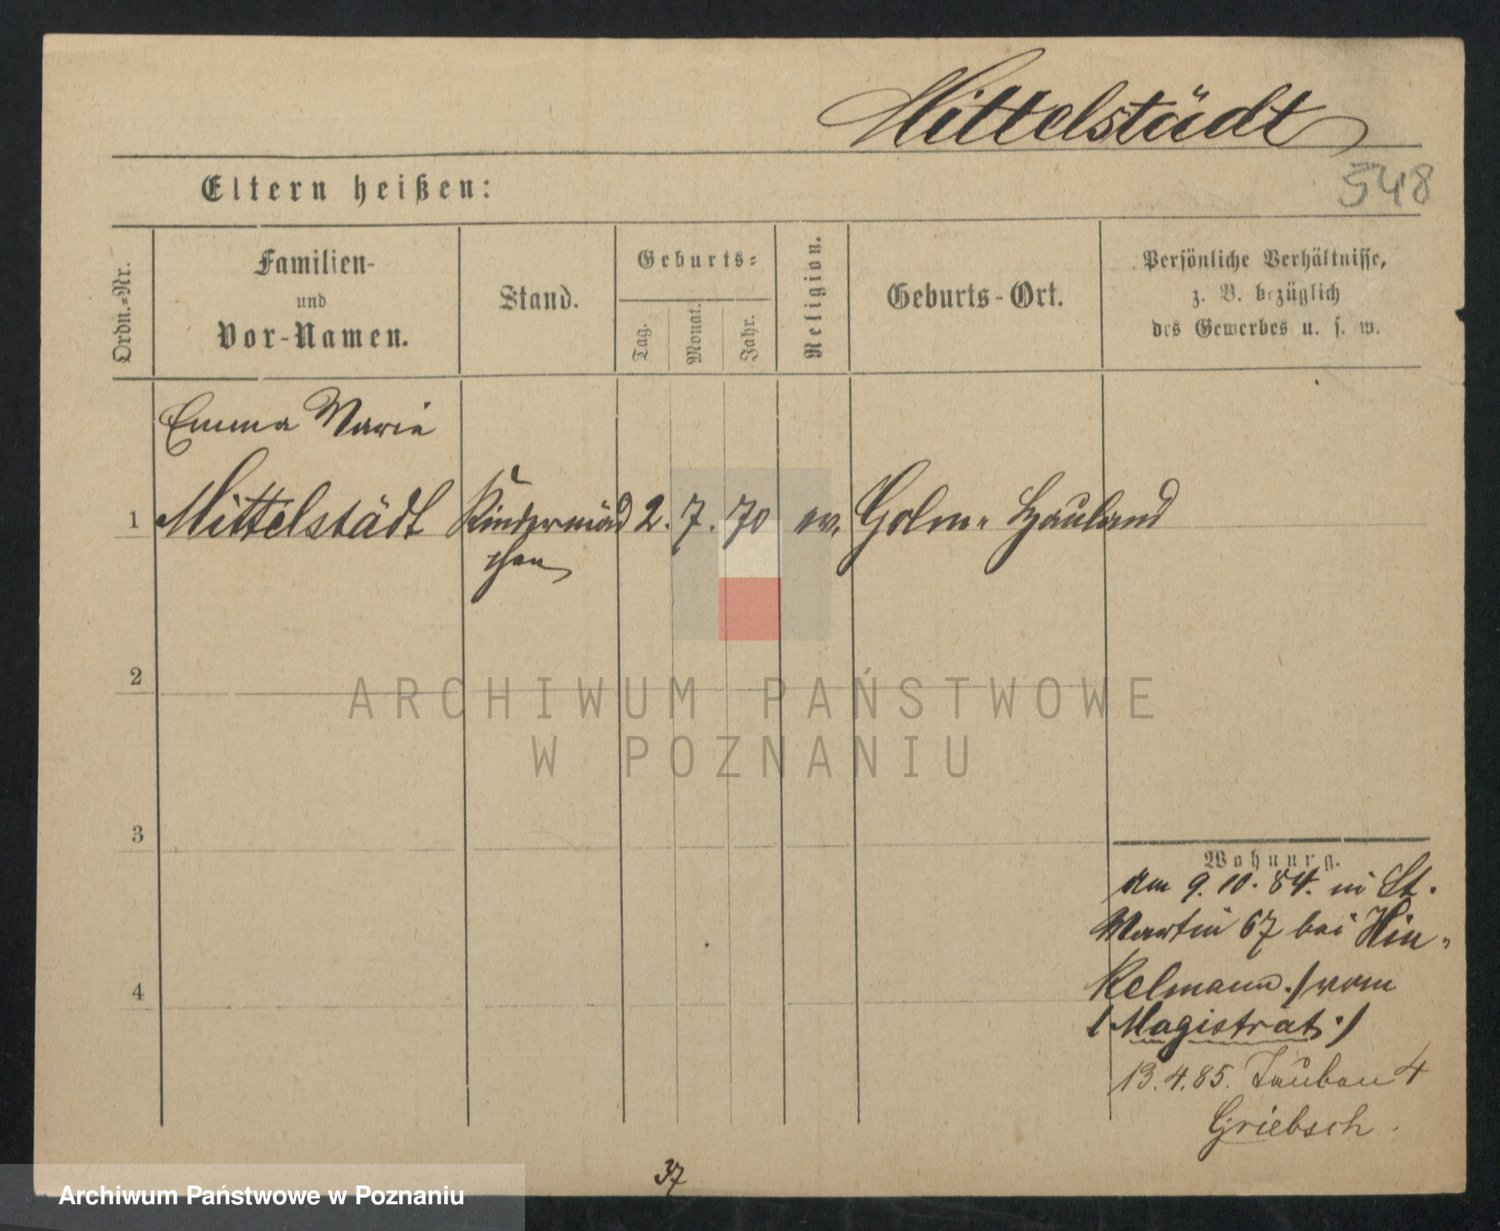 Mittelstädt
548
Eltern heißen:
Ordn.-Nr.
Familien-
und
Vor-Namen.
Stand.
Geburts-
Tag.
Monat.
Jahr.
Religion.
Geburts-Ort.
Persönliche Verhältnisse,
z. B. bezüglich
des Gewerbes u. s. w.
Emma Marie
1 Mittelstädt Kindermäd 2. 7. 70 ev. Golm- Hauland
chen
2
ARCHIWUM PAŃSTWOWE
W POZNANIU
3
Wohnung.
am 9.10.84. in St.
Martin 67 bei Hin-
4
kelmann. / vom
(Magistrat./
13.4.85. Tauben 4
Griebsch.
37
Archiwum Państwowe w Poznaniu